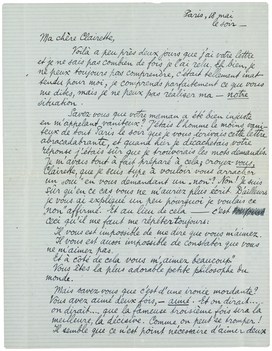 Paris, 18 mai
le soir —
Ma chère Clairette,
Voilà à peu près deux jours que j'ai votre lettre
et je ne sais pas combien de fois je l'ai relu. Et bien, je
ne peux toujours pas comprendre, c'était tellement inat-
tendu pour moi, je comprends parfaitement ce que vous
me dites, mais je ne peux pas réaliser ma — notre
situation.
Savez vous que votre maman a été bien injuste
en m'appelant "vaniteux"? J'étais l'homme le moins vani-
teux de tout Paris le soir que je vous écrivais cette lettre
abracadabrante, et quand hier je décachetais votre
réponse j'étais sûr que je trouverais les mots demandés.
Je m'avais tout à fait préparé à cela, croyez-vous
Clairette, que je suis type à vouloir vous arracher
un "oui" en vous demandant un "non"? Non! Je suis
sûr qu'en ce cas vous ne m'auriez plus écrit. D'ailleurs
je vous ai expliqué un peu pourquoi je voulais ce
"non" affirmé. Et au lieu de cela — c'est
ceci qu'il me faut me répéter toujours:
Il vous est impossible de me dire que vous m'aimez.
Il vous est aussi impossible de constater que vous
ne m'aimez pas.
Et à côté de cela vous m'aimez beaucoup!
Vous êtes la plus adorable petite philosophe du
monde.
Mais savez vous que c'est d'une ironie mordante?
Vous avez aimé deux fois, — aimé. Et on dirait...,
on dirait..., que la fameuse troisième fois sera la
meilleure, la décisive. Comme on peut se tromper!
Il semble que ce n'est point nécessaire d'aimer deux